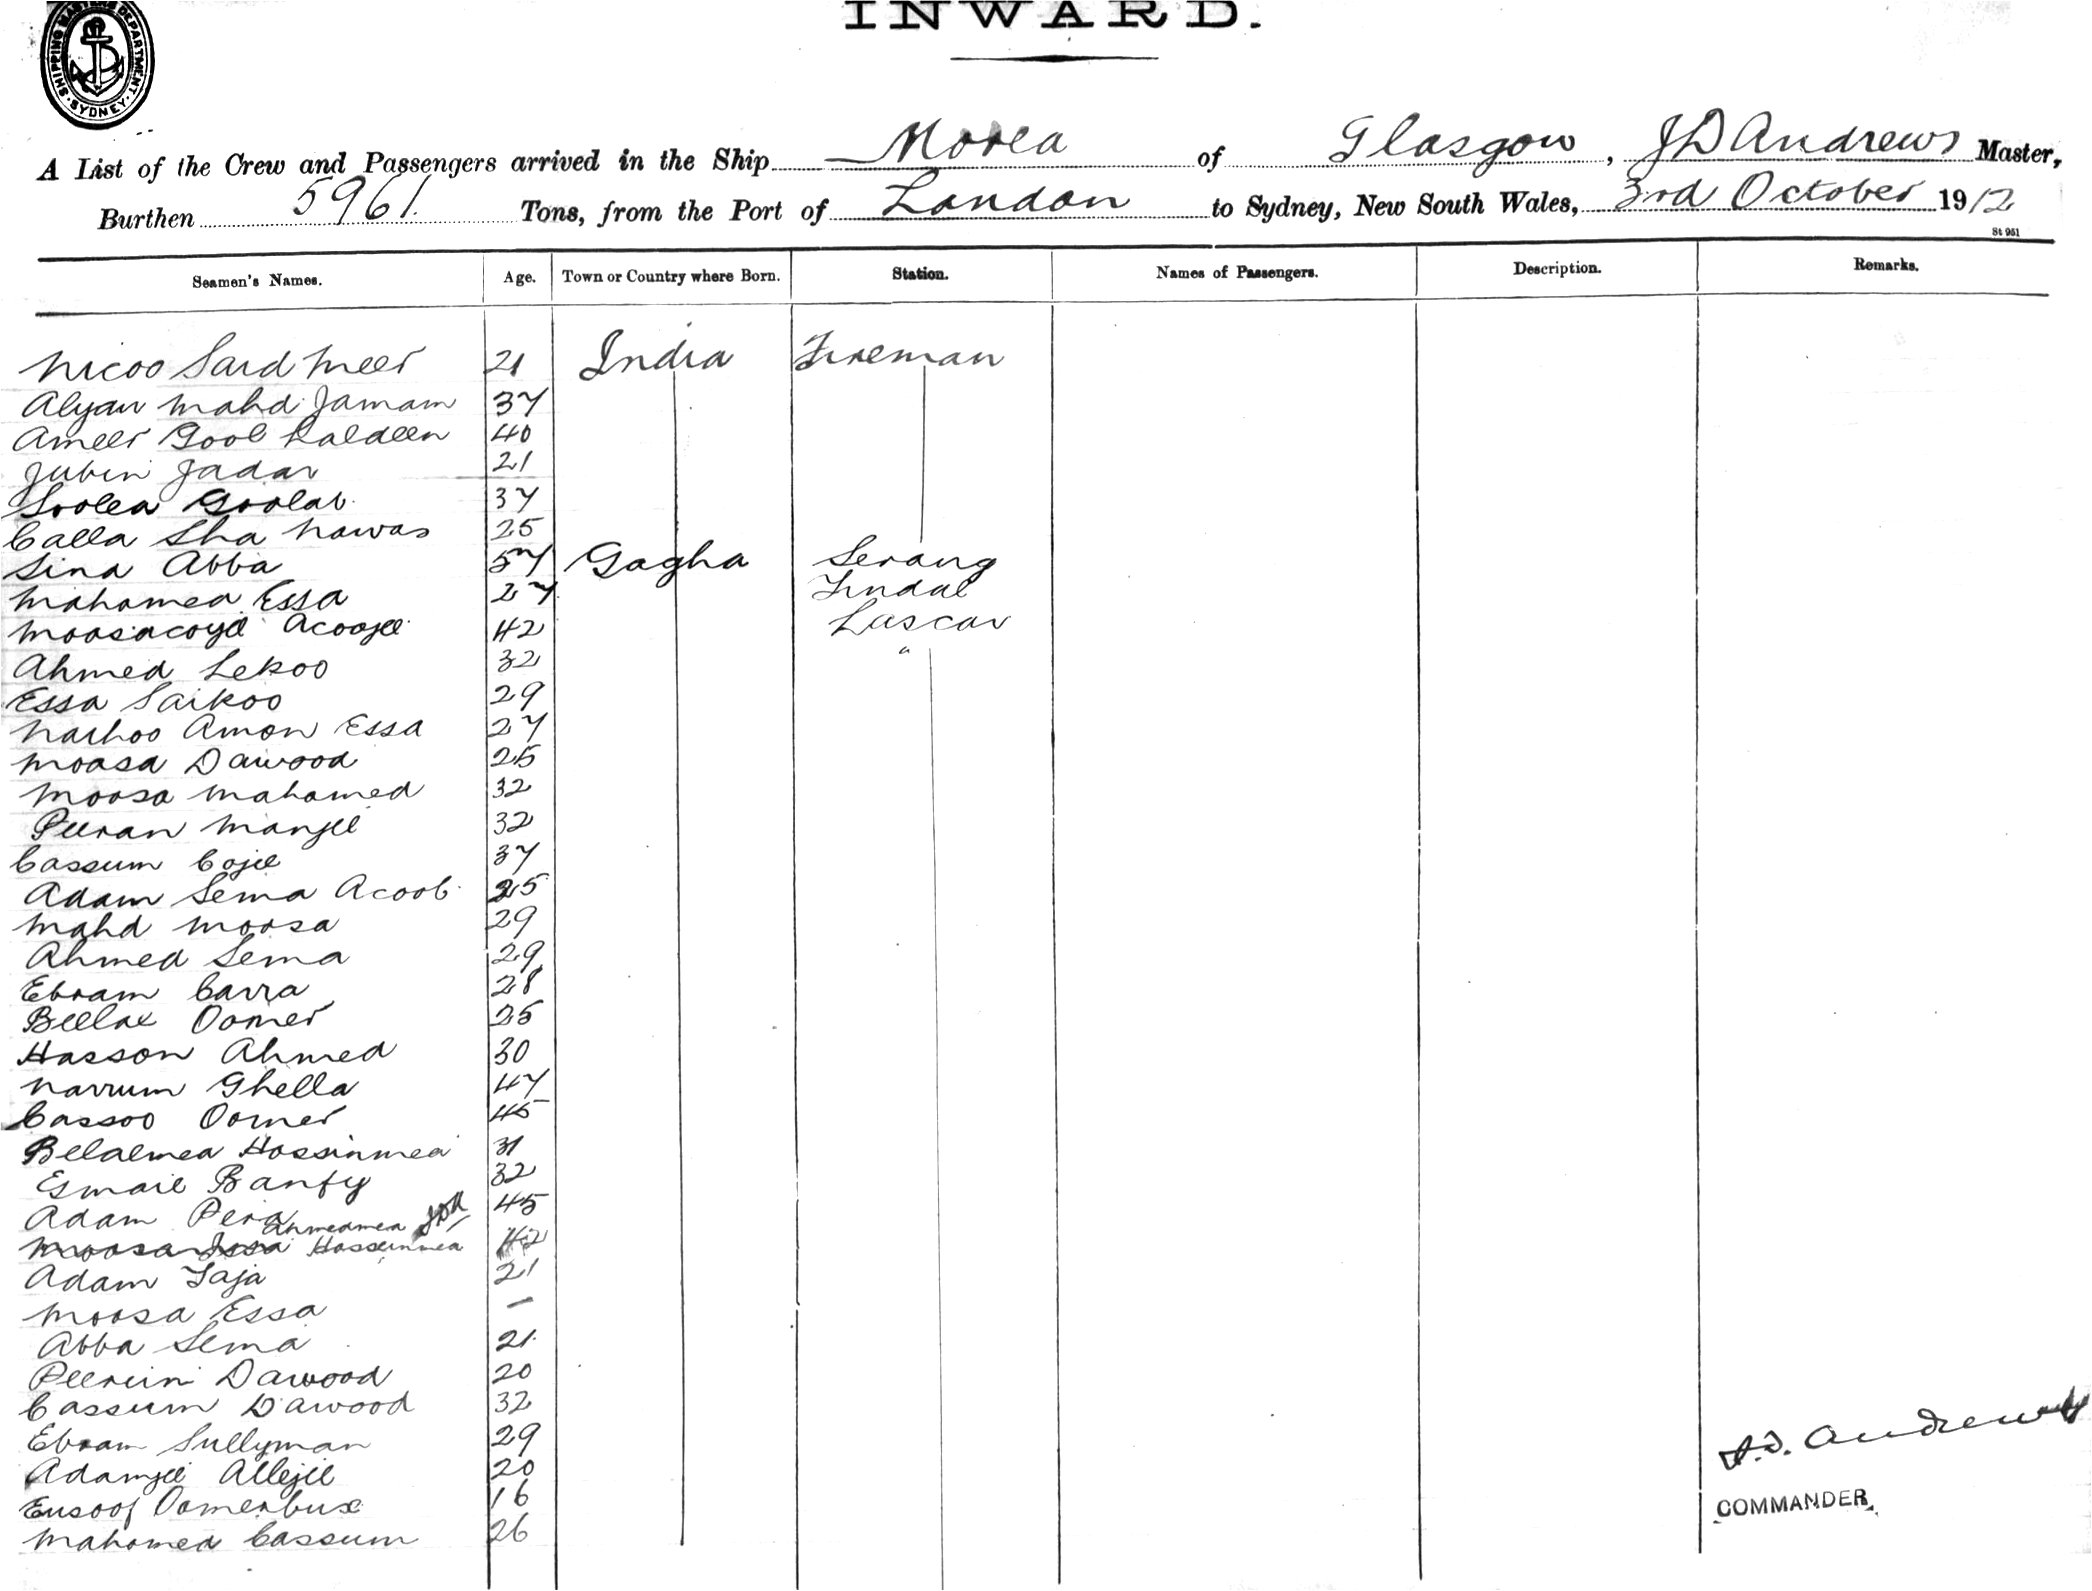 INWARD.
SHIPPING MASTERS DEPARTMENT
SYDNEY
A List of the Crew and Passengers arrived in the Ship Morea of Glasgow, J D Andrews Master,
Burthen 5961. Tons, from the Port of London to Sydney, New South Wales, 3rd October 1912
St 961
Seamen's Names. Age. Town or Country where Born. Station. Names of Passengers. Description. Remarks.
Nicoo Said Meer 21 India Fireman
Alyan Mahd Jamam 37
Ameer Gool Laldeen 40
Jubin Jadar 21
Soolea Goolab 37
Calla Sha Nawas 25
Sina Abba 57 Gogha Serang
Mahomed Essa 27 Tindal
Moosacoyd Acoojee 42 Lascar
Ahmed Sekoo 32 "
Essa Saikoo 29
Nachoo Amon Essa 27
Moosa Dawood 25
Moosa Mahomed 32
Peeran Manjee 32
Cassum Cojee 37
Adam Sema Acoob 25
Mahd Moosa 29
Ahmed Sema 29
Ebram Carra 28
Beelal Oomer 25
Hasson Ahmed 30
Narrum Ghella 47
Cassoo Oomer 45
Belalmea Hossinmea 31
Esmail Banfy 32
Adam Pera 45
Ahmedmea JDA
Moosa Issa Hosseinmea 42
Adam Taja 21
Moosa Essa –
Abba Sema 21
Peerun Dawood 20
Cassum Dawood 32
Ebram Sullyman 29
J.D. Andrews
Adamjee Allejee 20
Eusoof Oomerbux 16
COMMANDER.
Mahomed Cassum 26